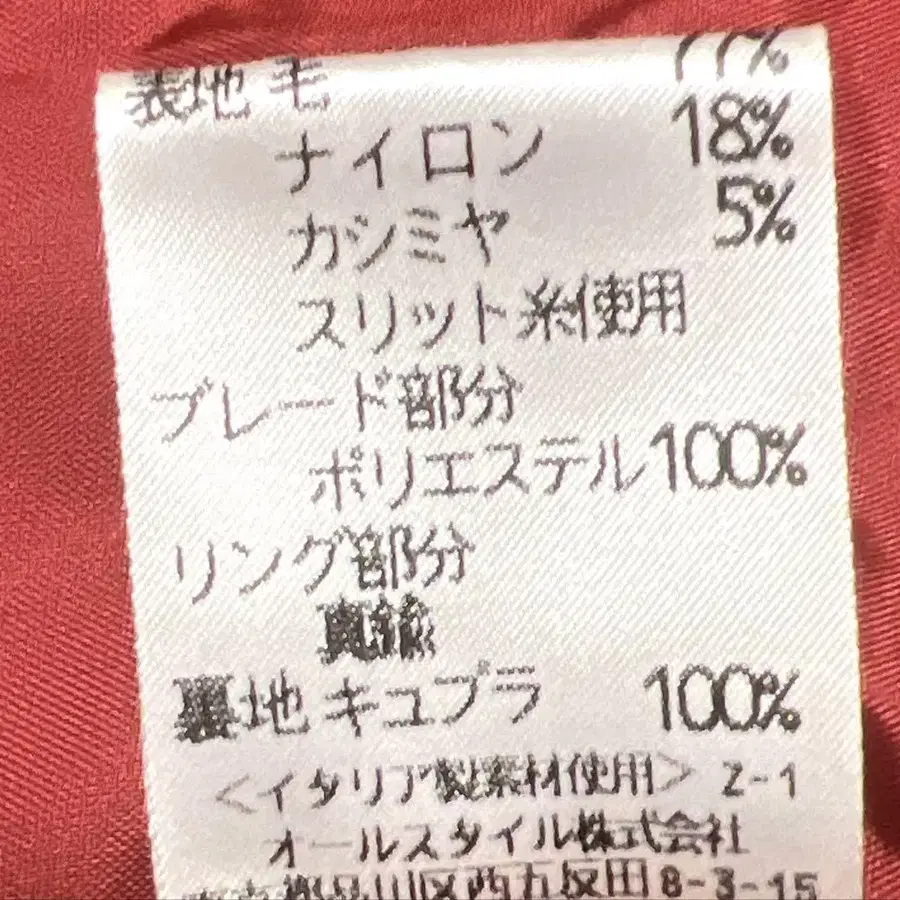 表地 毛 77%
ナイロン 18%
カシミヤ 5%
スリット糸使用
ブレード部分
ポリエステル100%
リング部分
真鍮
裏地 キュプラ 100%
<イタリア製素材使用> Z-1
オールスタイル株式会社
東京都品川区西五反田8-3-15